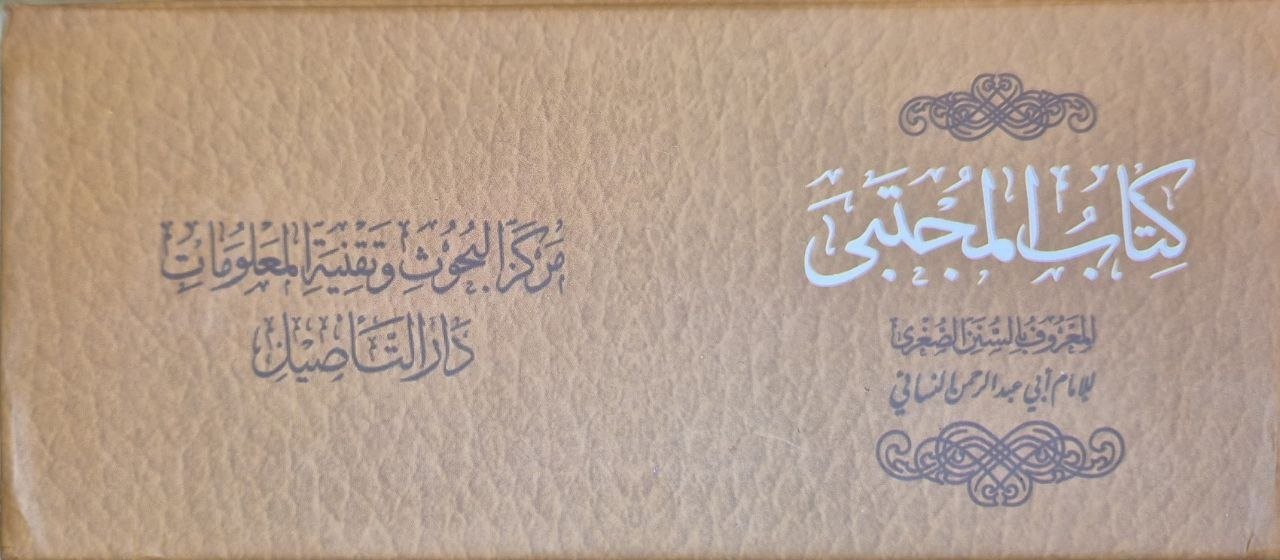 كِتَابُ المُجْتَبَى
المَعْرُوفُ بِالسُّنَنِ الصُّغْرَى
للإمام أبي عبد الرحمن النسائي
مَرْكَزُ البُحُوثِ وَتَقْنِيَةِ المَعْلُومَاتِ
دَارُ التَّأصِيْلِ